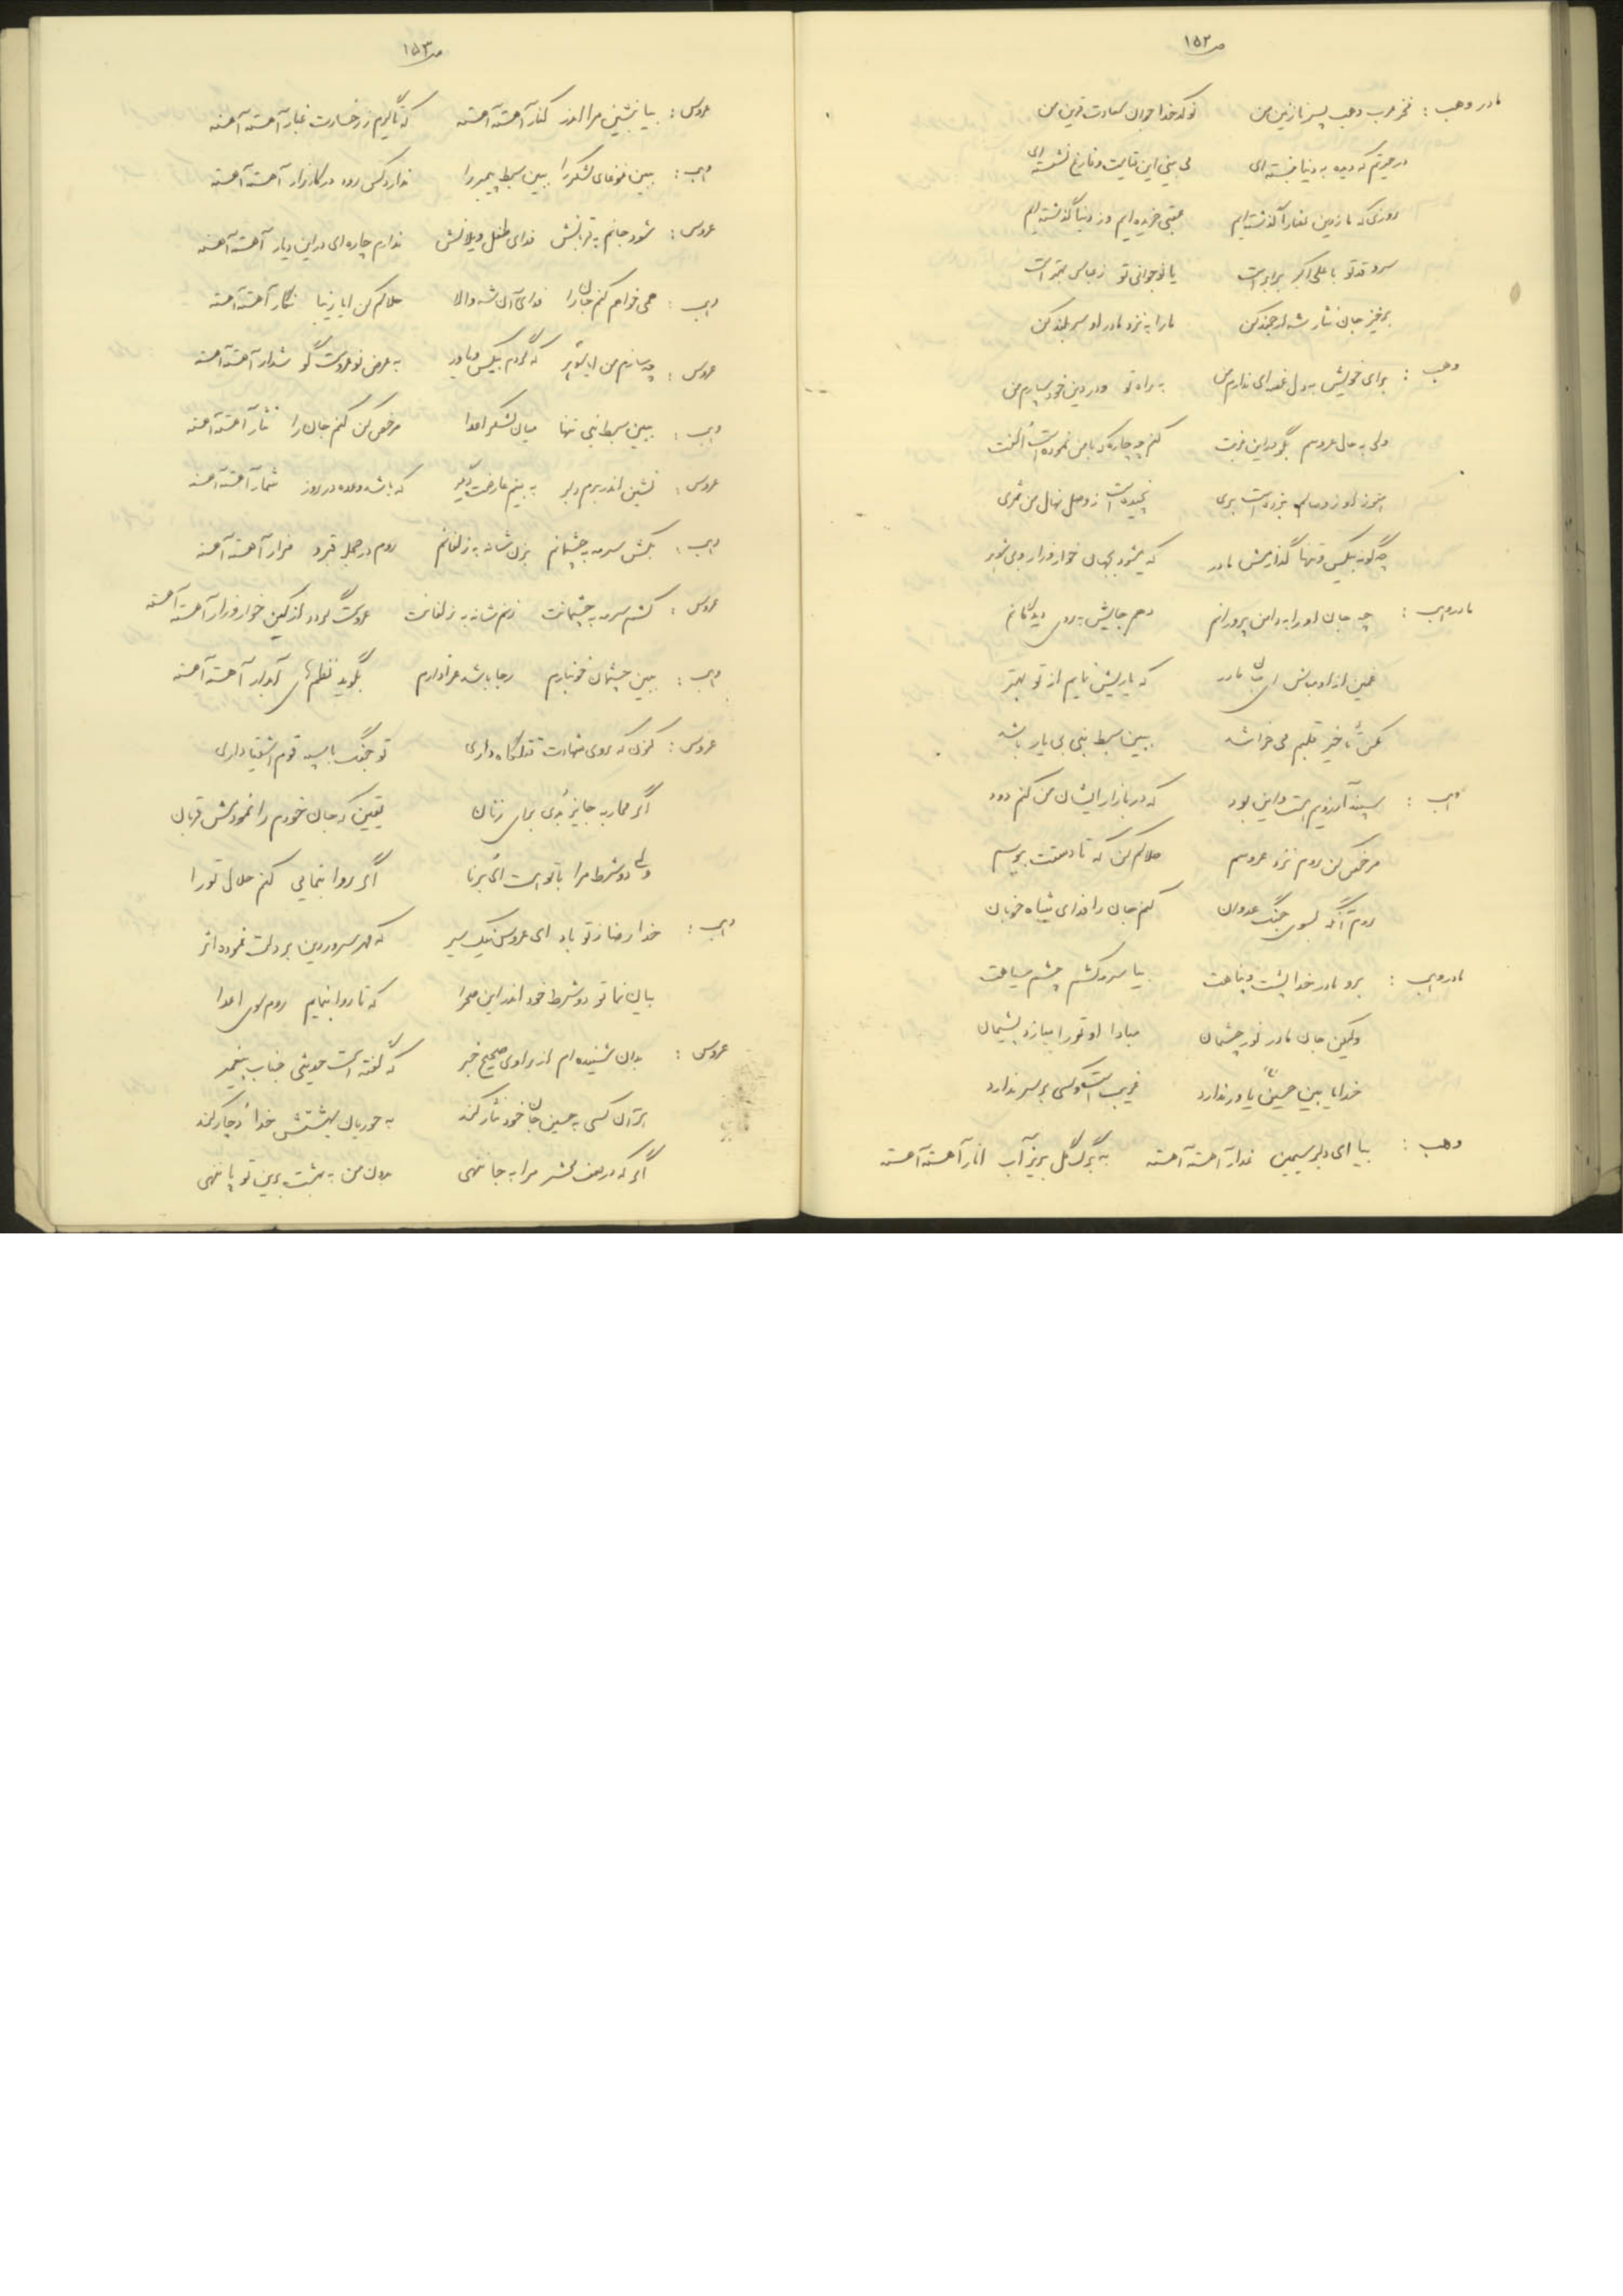 ص۱۵۲
مادر وهب : فخر عرب وهب پسر نازنین من نوکدخدا جوان سعادت قرین من
در حیرتم که دیده به دنیا نبسته ای می بینی این قیامت و فارغ نشسته ای
روزی که ما ز دین نصارا گذشته ایم عقبی خریده ایم وز دنیا گذشته ایم
سرو قد تو با علی اکبر برابر است یا نوجوانی تو ز عباس بهتر است
برخیز جان نثار شه ارجمند کن ما را به نزد مادر او سربلند کن
وهب : برای خویش به دل غصه ای ندارم من به راه تو و در دین خود سپارم من
ولی به حال عروسم بگو در این غربت کنم چه چاره که با من نموده است اُلفت
هنوز او ز وصالم نبرده است بری نچیده است از وصل نهال من ثمری
چگونه بیکس و تنها گذارمش مادر که میشود بجهان خوار و زار و بی شوهر
مادر وهب : چه جان او را به دامن پرورانم دهم جایش به روی دیدگانم
غمین از او مباش ای جان مادر که یاریش نمایم از تو بهتر
مکن تأخیر قلبم می خراشد ببین سبط نبی بی یار باشد
وهب : سپند آرزویم هست و این بود که در بازار ایشان من کنم دود
مرخص کن روم نزد عروسم حلالم کن که تا دستت ببوسم
روم آنگه بسوی جنگ عدوان کنم جان را فدای شاه خوبان
مادر وهب : برو مادر خدا پشت و پناهت بیا سرمه کشم چشم سیاهت
ولیکن جان مادر نور چشمان مبادا او تو را سازد پشیمان
خدایا بین حسین یاور ندارد غریب است و کسی بر سر ندارد
وهب : بیا ای دلبر سیمین عذار آهسته آهسته به برگ گل بریز آب انار آهسته آهسته
ص۱۵۳
عروس : بیا بنشین مرا اندر کنار آهسته آهسته که تا گیرم ز رخسارت غبار آهسته آهسته
وهب : ببین غوغای لشکر را ببین سبط پیمبر را ندارد کس رود در کارزار آهسته آهسته
عروس : شود جانم به قربانش فدای طفل ویلانش ندارم چاره ای در این دیار آهسته آهسته
وهب : همی خواهم کنم جان را فدای آن شه والا حلالم کن ایا زیبا نگار آهسته آهسته
عروس : چه سازم من ایا شوهر که گردم بیکس و یاور به عرض نوعروست گو شدار آهسته آهسته
وهب : ببین سبط نبی تنها میان لشکر اعدا مرخص کن کنم جان را نثار آهسته آهسته
عروس : نشین اندر برم دلبر به بینم عارضت دیگر که باشد وعده در روز شمار آهسته آهسته
وهب : بکش سرمه به چشمانم بزن شانه به زلفانم روم در حجله قبر و مزار آهسته آهسته
عروس : کشم سرمه به چشمانت زنم شانه به زلفانت عروست گردد از کین خوار و زار آهسته آهسته
وهب : ببین چشمان خونبارم رجا باشد عزادارم بگوید نظم های آبدار آهسته آهسته
عروس : کنون که روی شهادت به قتلگاه داری تو جنگ با سپه قوم اشقیا داری
اگر محاربه جایز بُدی برای زنان یقین که جان خودم را نمودمش قربان
ولی دو شرط مرا با تو هست ای برنا اگر روا بنمایی کنم حلال تو را
وهب : خدا رضا ز تو باد ای عروس نیک سیر که مهر سرور دین بر دلت نموده اثر
بیان نما تو دو شرط خود اندر این صحرا که تا روا بنمایم روم سوی اعدا
عروس : بدان شنیده ام از راوی صحیح خبر که گفته است حدیثی جناب پیغمبر
هر آن کسی به حسین جان خود نثار کند به حوریان بهشتش خدا دچار کند
اگر که در صف محشر مرا به جا ننهی بدون من به بهشت برین تو پا ننهی